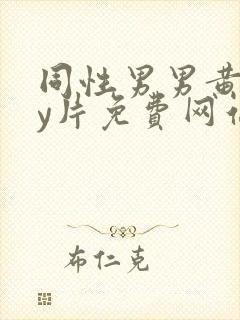 同性男男黄
y片免费网
布仁克